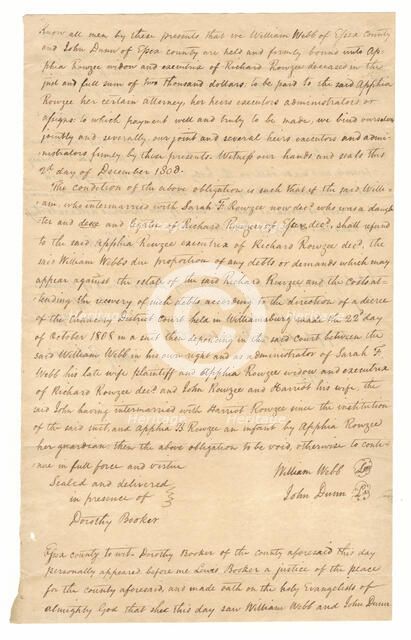 Know all men by these presents that we William Webb of Essex County
and John Dunn of Essex county are held and firmly bound unto Ap-
phia Rowzee widow and executrix of Richard Rowzee deceased in the
just and full sum of two thousand dollars; to be paid to the said Apphia
Rowzee her certain attorney, her heirs executors administrators or
assigns: to which payment well and truly to be made, we bind ourselves
jointly and severally, our joint and several heirs executors and admi-
nistrators firmly by these presents. Witness our hands and seals this
2d day of December 1808.
The condition of the above obligation is such that if the said Willi-
am, who intermarried with Sarah F. Rowzee now decd. who was a daugh-
ter and of Richard Rowzee of Essex decd., shall refund
to the said Apphia Rowzee executrix of Richard Rowzee decd. the
said William Webbs due proportion of any debts or demands which may
appear against the estate of the said Richard Rowzee and the costs at-
tending the recovery of such debts according to the direction of a decree
of the Chancery District Court held in Williamsburg made the 22d day
of October 1808 in a suit then depending in the said Court between the
said William Webb in his own right and as administrator of Sarah F.
Webb his late wife plaintiff and Apphia Rowzee widow and executrix
of Richard Rowzee decd. and John Rowzee and Harriot his wife, the
said John having intermarried with Harriot Rowzee since the institution
of the said suit, and Apphia B. Rowzee an infant by Apphia Rowzee
her guardian: then the above obligation to be void, otherwise to conti-
nue in full force and virtue
Sealed and delivered
in presence of
Dorothy Booker
William Webb
John Dunn
Essex county to wit. Dorothy Booker of the county aforesaid this day
personally appeared before me Lewis Booker a justice of the peace
for the county aforesaid, and made oath on the holy Evangelists of
almighty God that she this day saw William Webb and John Dunn